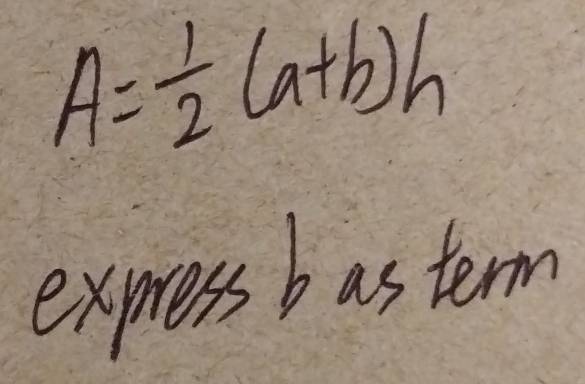 A = 1/2 (a+b)h
express b as term